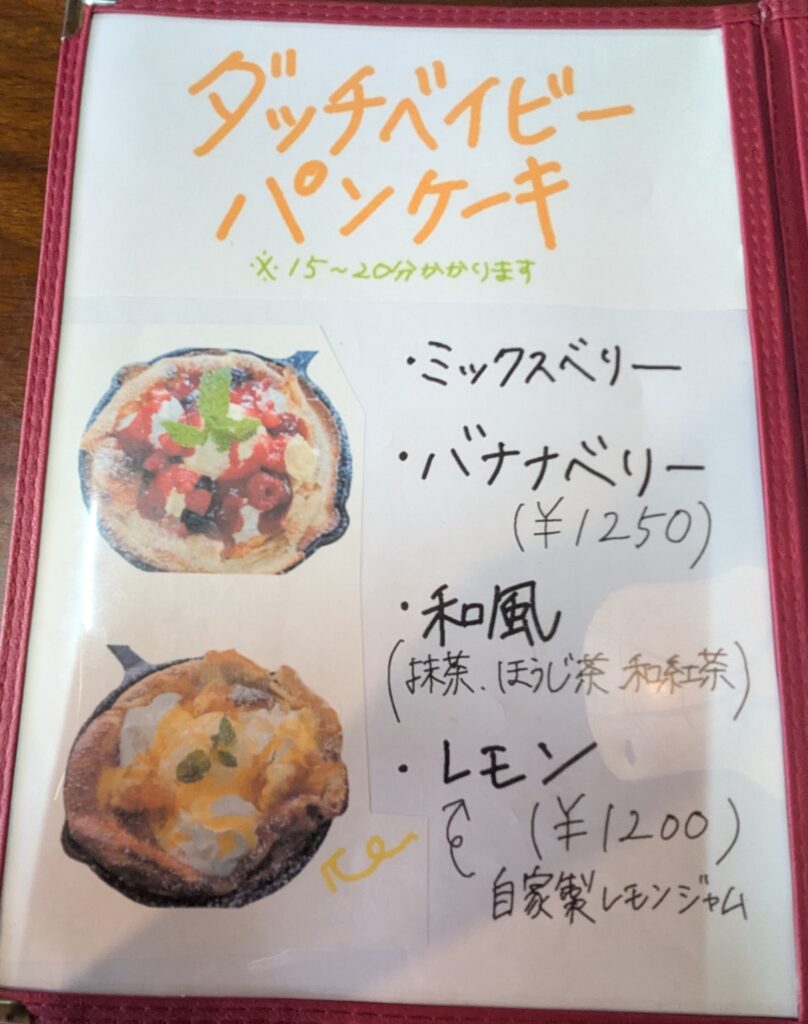 ダッチベイビー
パンケーキ
※15～20分かかります
・ミックスベリー
・バナナベリー
(¥1250)
・和風
(抹茶、ほうじ茶 和紅茶)
・レモン
(¥1200)
自家製レモンジャム